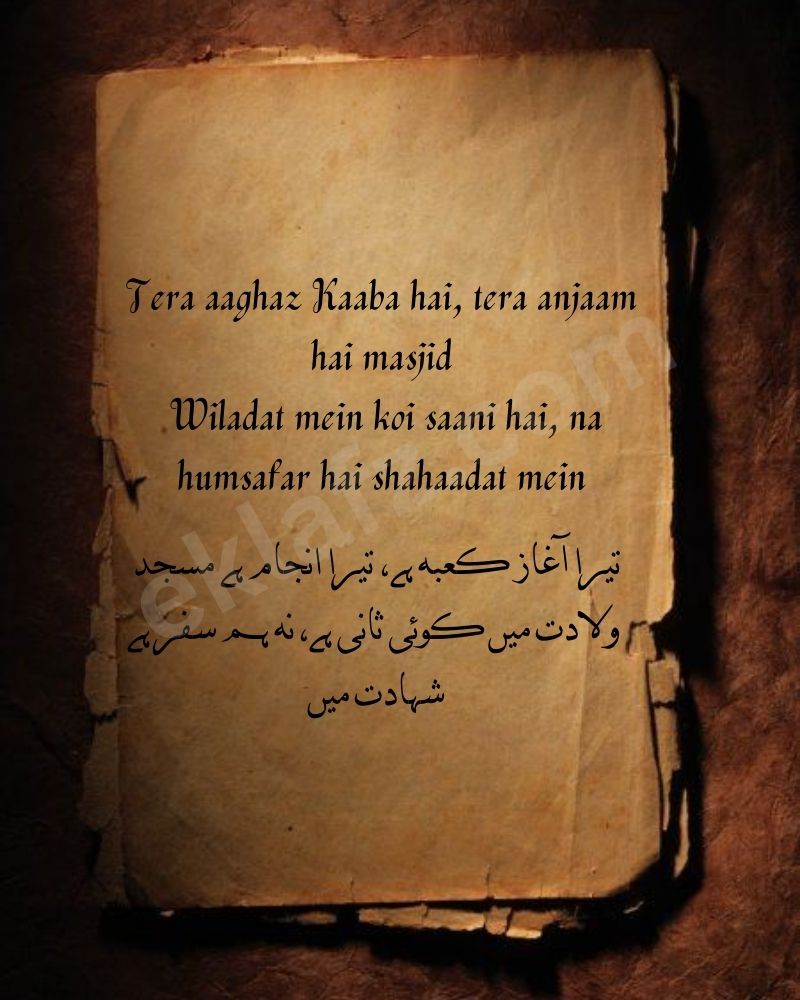 Tera aaghaz Kaaba hai, tera anjaam
hai masjid
Wiladat mein koi saani hai, na
humsafar hai shahaadat mein
تیرا آغاز کعبہ ہے، تیرا انجام ہے مسجد
ولادت میں کوئی ثانی ہے، نہ ہم سفر ہے
شہادت میں
eklafz.com